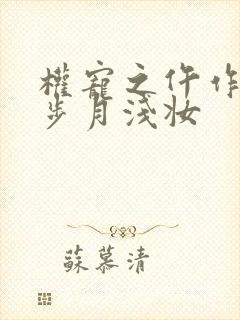 權寵之仵作
步月淺妝
蘇慕清